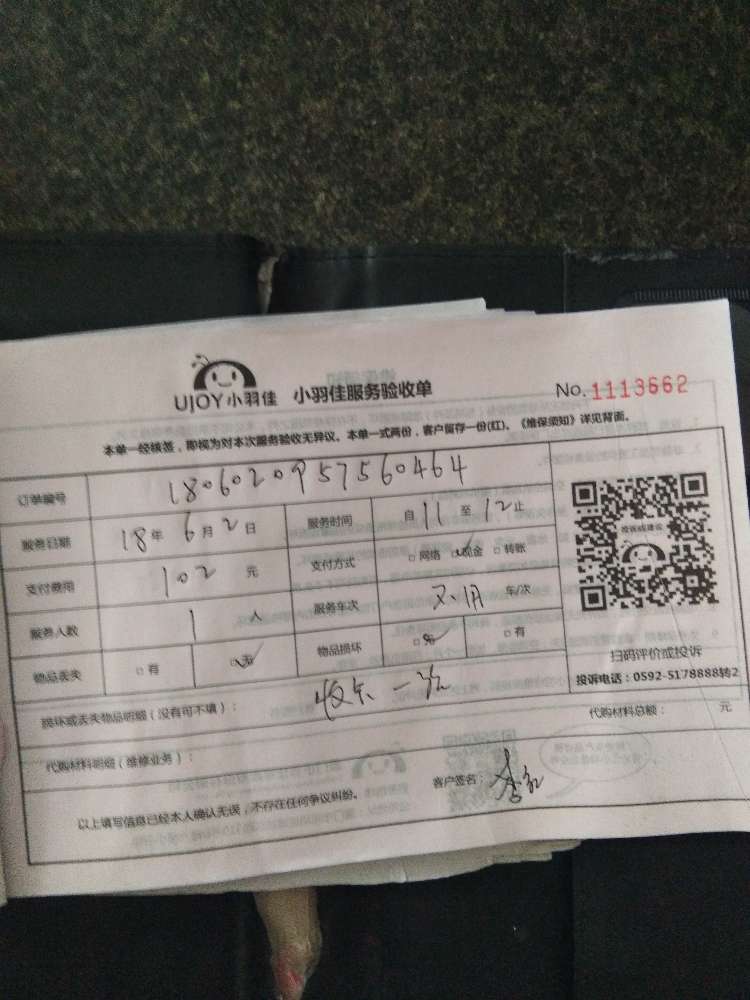 UJOY小羽佳 小羽佳服务验收单 No. 1113662
本单一经核签，即视为对本次服务验收无异议。本单一式两份，客户留存一份(红)。《维保须知》详见背面。
订单编号 1806020957560464
服务日期 18年6月2日 服务时间 自11至12止
支付费用 102元 支付方式 □网络 □现金 □转账
服务人数 1人 服务车次 不用 车/次
物品丢失 □有 □无 物品损坏 □无 □有
投诉或建议
扫码评价或投诉
投诉电话：0592-5178888转2
损坏或丢失物品明细（没有可不填）： 收尖一次
代购材料明细（维修业务）： 代购材料总额： 元
以上填写信息已经本人确认无误，不存在任何争议纠纷。 客户签名：李